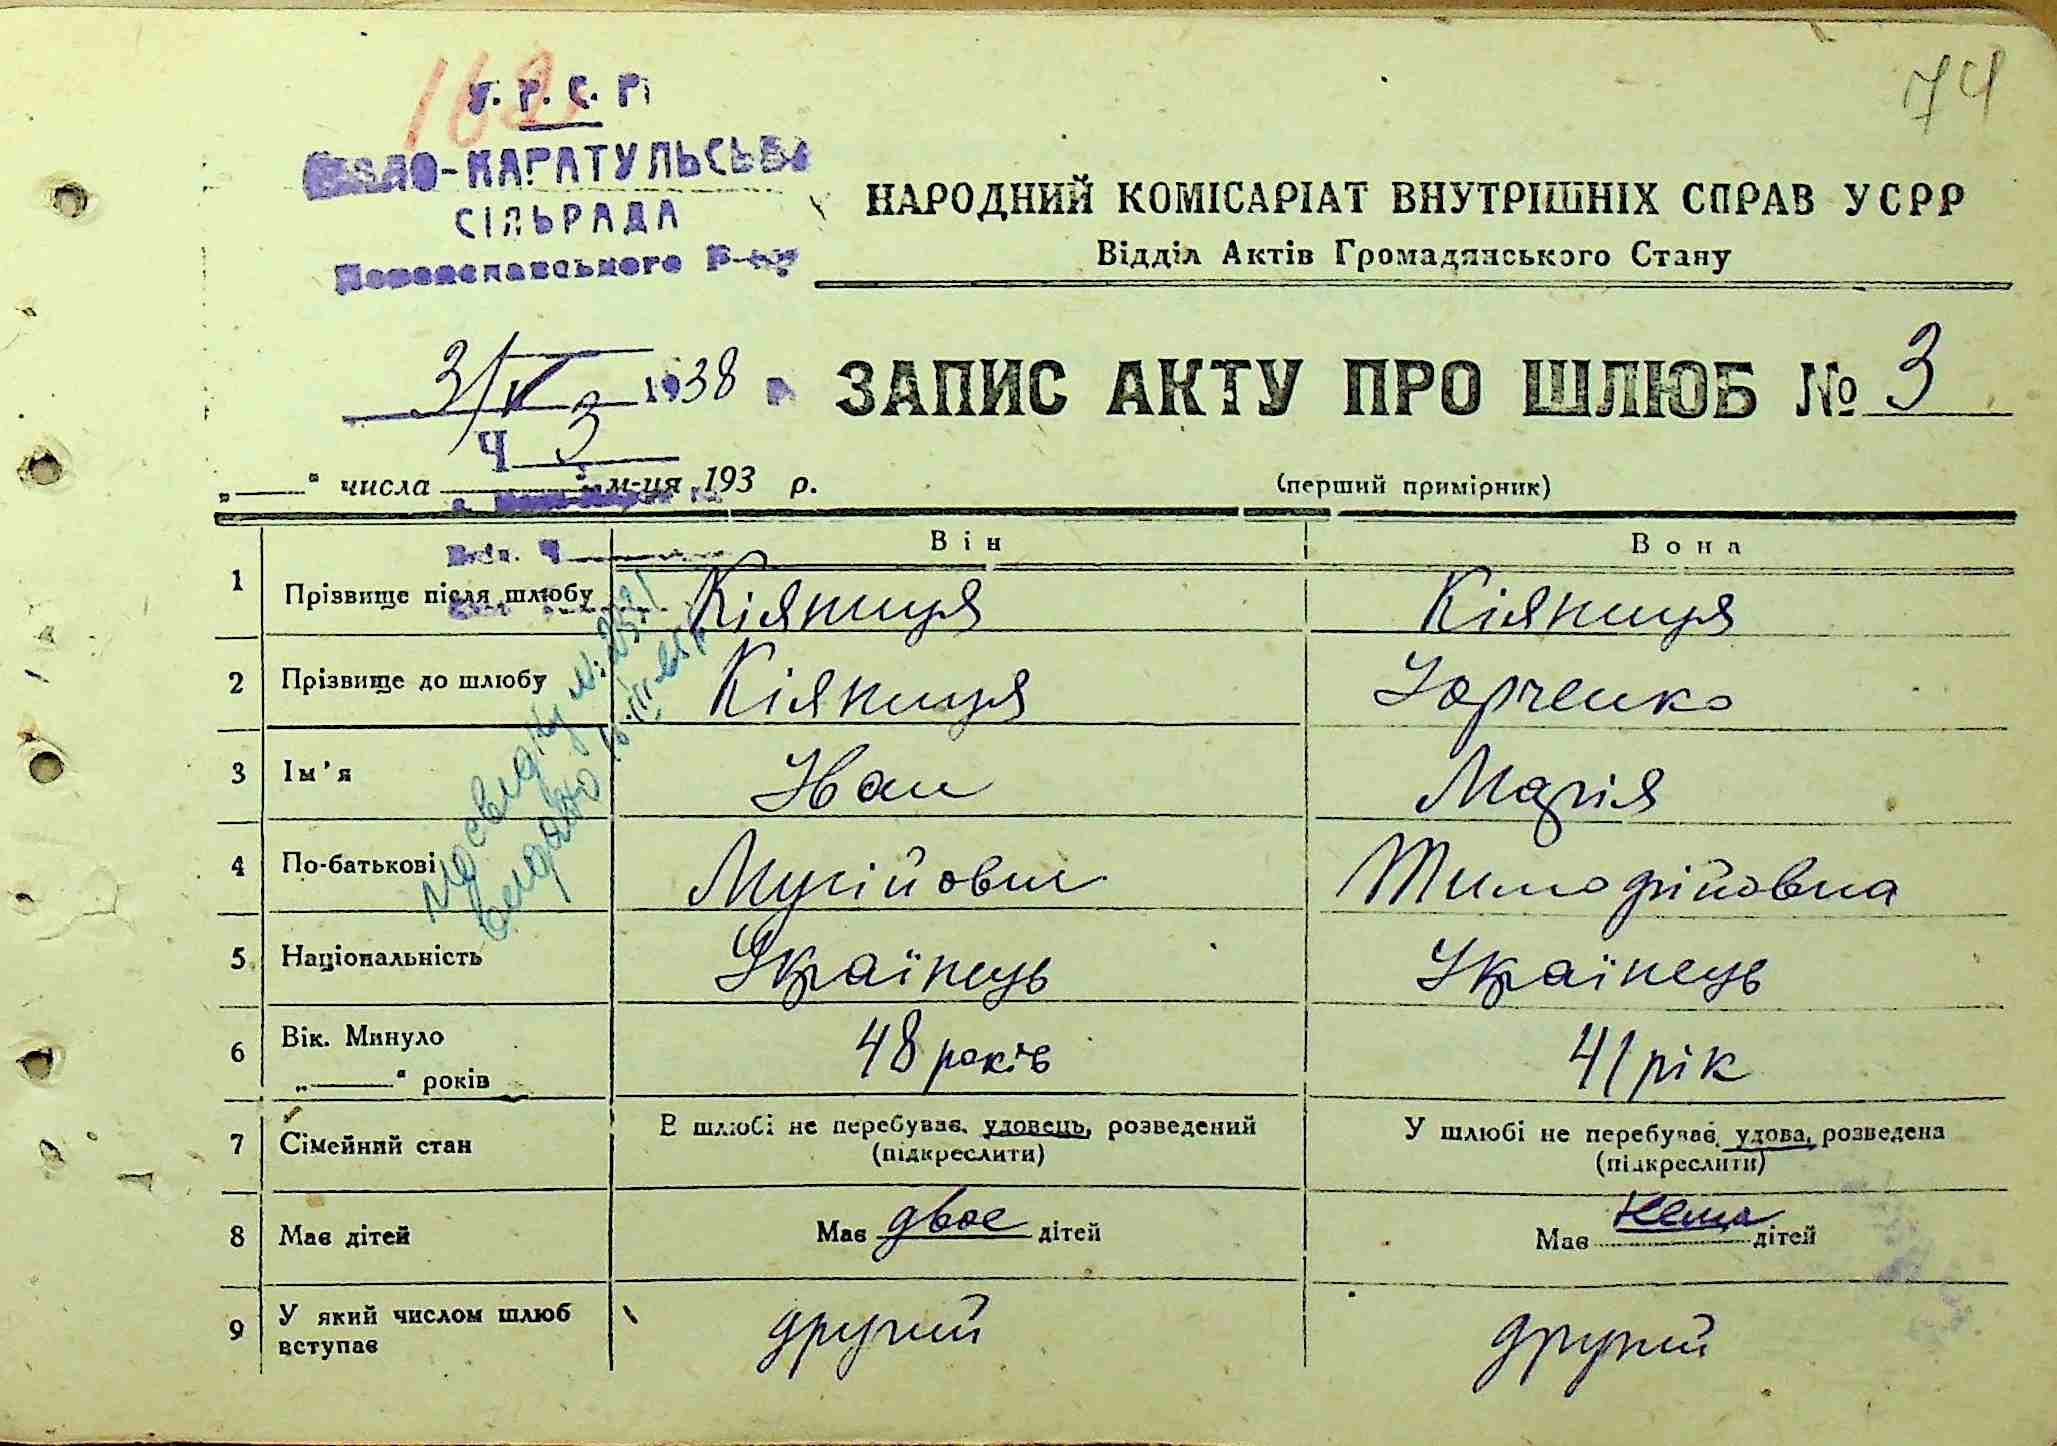 74
162
У. Р. С. Р.
МАЛО-КАРАТУЛЬСЬКА
СІЛЬРАДА
Переяславського Р-ну
НАРОДНИЙ КОМІСАРІАТ ВНУТРІШНІХ СПРАВ УСРР
Відділ Актів Громадянського Стану
3/V 1938 р.
Ч 3
ЗАПИС АКТУ ПРО ШЛЮБ № 3
„——“ числа —— м-ця 193 р.
(перший примірник)
Він Вона
1 Прізвище після шлюбу Кіяниця Кіяниця
2 Прізвище до шлюбу Кіяниця Юрченко
3 Ім'я Іван Марія
4 По-батькові Мусійович Тимофійовна
5 Національність Українець Українець
6 Вік. Минуло „——“ років 48 років 41 рік
7 Сімейний стан В шлюбі не перебував, удовець, розведений (підкреслити) У шлюбі не перебував, удова, розведена (підкреслити)
8 Має дітей Має двоє дітей Має нема дітей
9 У який числом шлюб вступає другий другий
видано